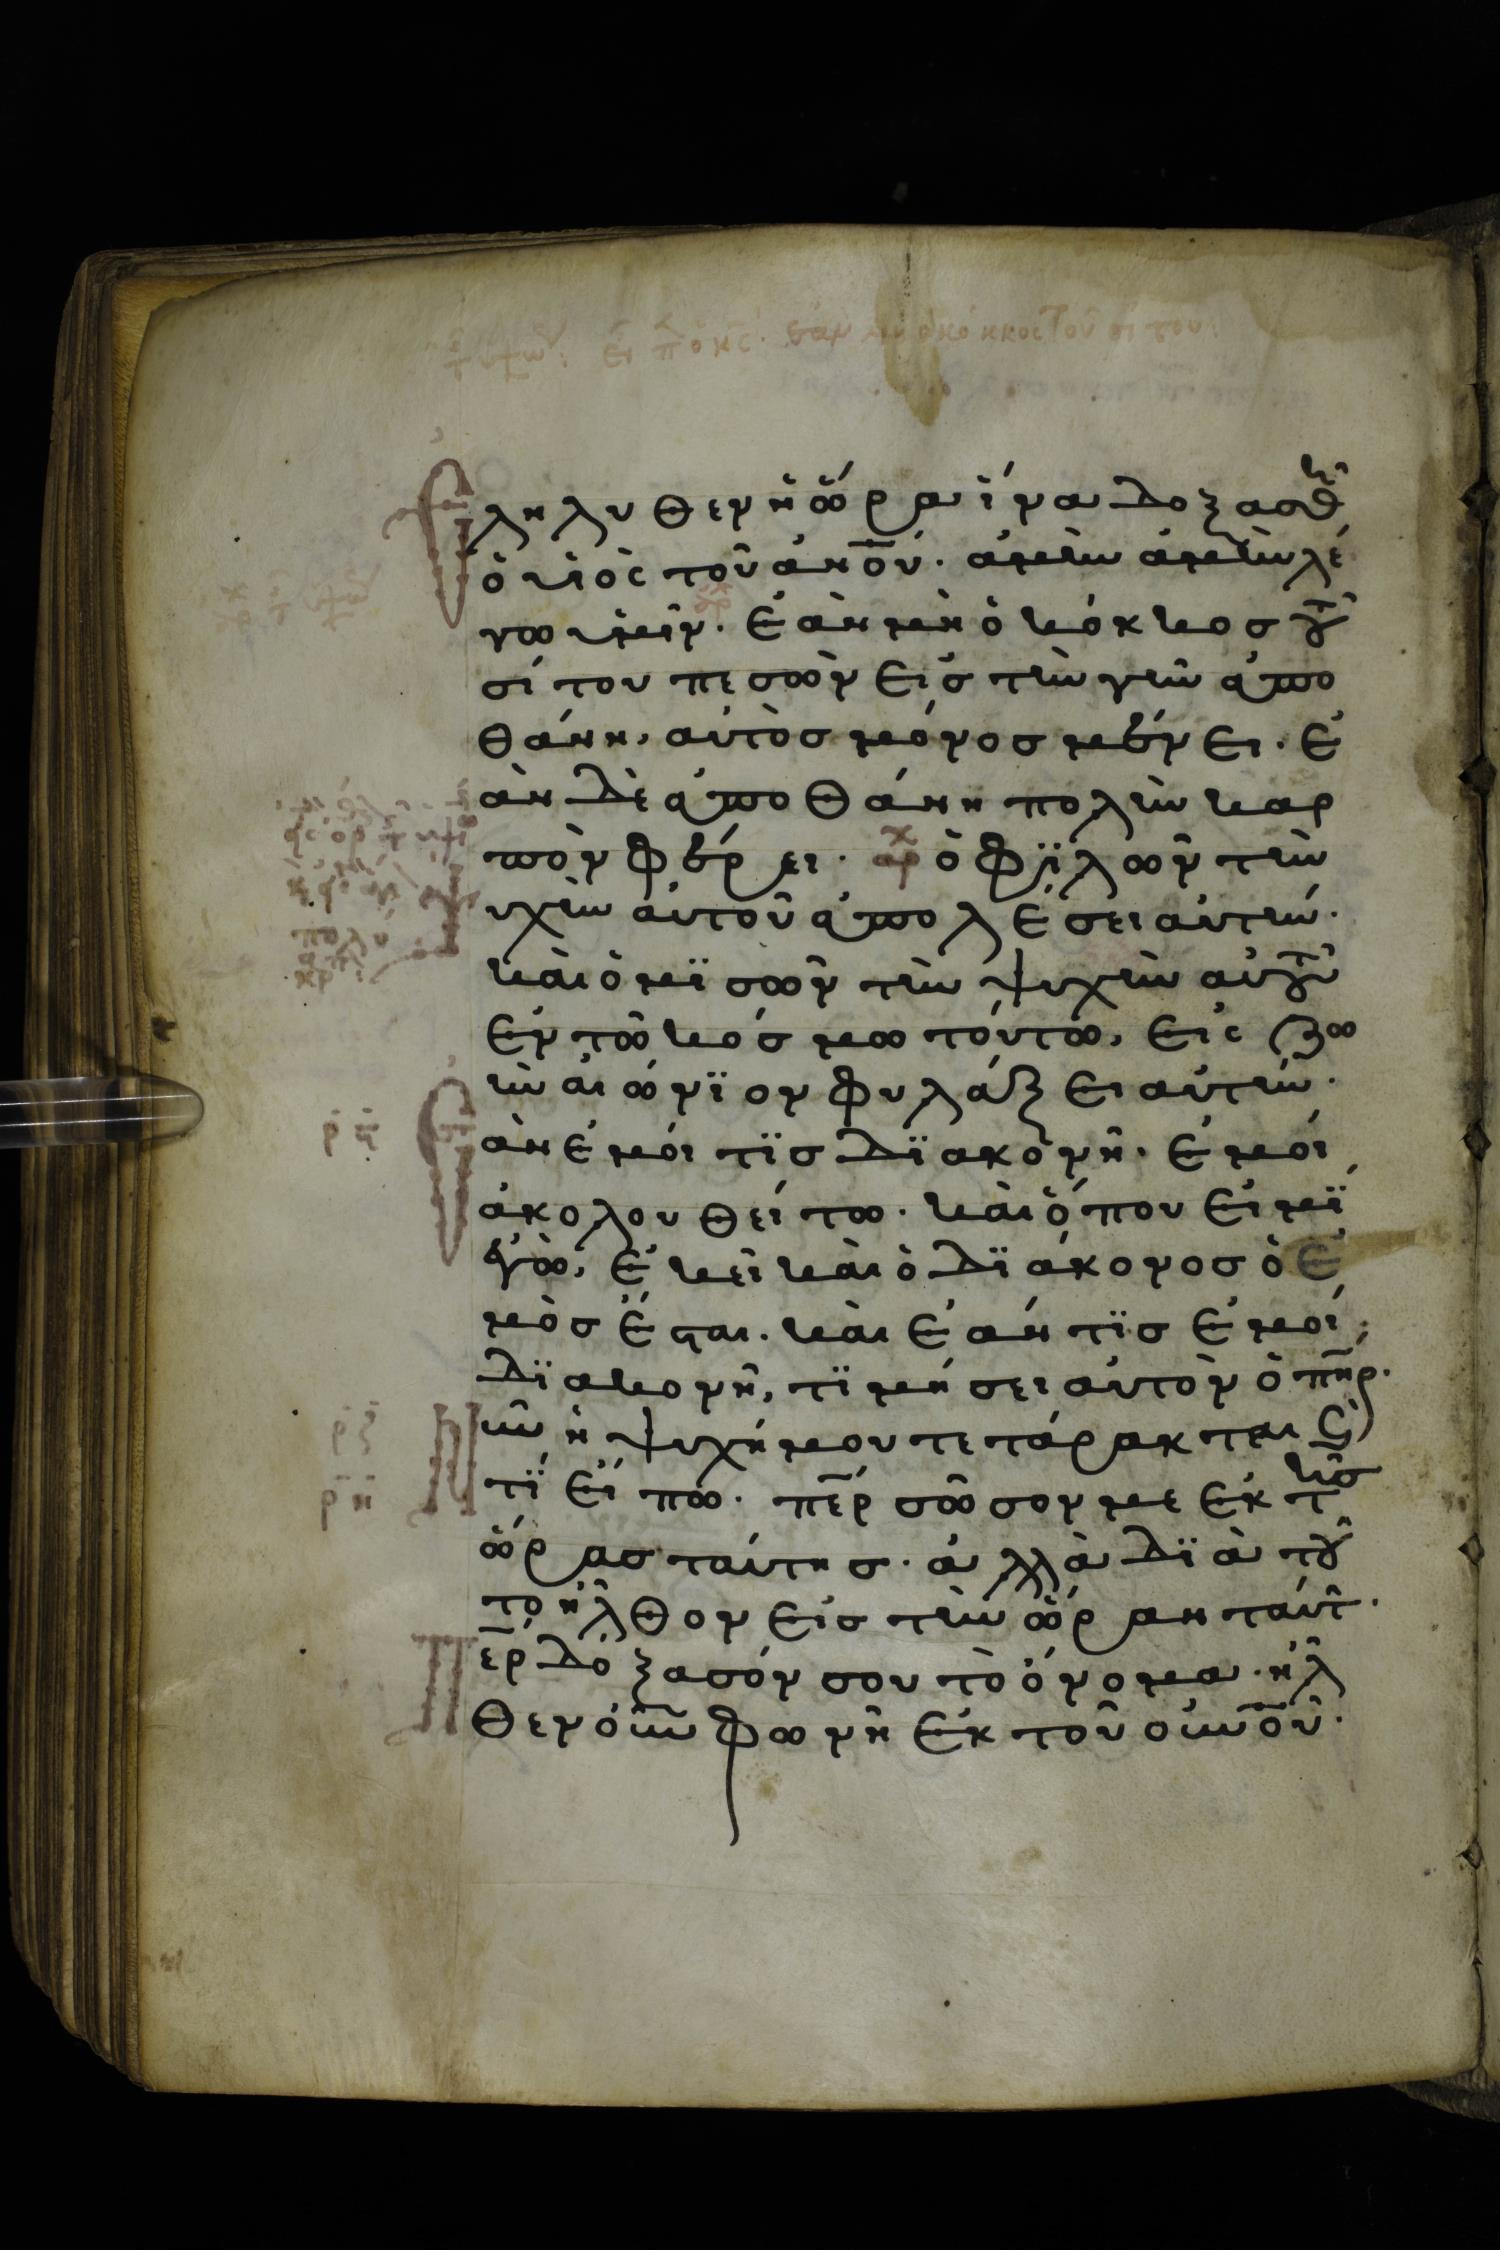 ἐὰν μὴ ὁ κόκκος τοῦ σίτου:
Ἐλήλυθεν ἡ ὥρα ἵνα δοξασθῆ
ὁ υἱὸς τοῦ ἀνου. ἀμὴν ἀμὴν λέ
γω ὑμῖν. ἐὰν μὴ ὁ κόκκος τοῦ
σίτου πεσὼν εἰς τὴν γῆν ἀπο
θάνη, αὐτὸς μόνος μένει. ἐ
ὰν δὲ ἀποθάνη πολὺν καρ
πὸν φέρει. ὁ φϊλῶν τὴν
ψυχὴν αὐτοῦ ἀπολέσει αὐτήν.
καὶ ὁ μϊσῶν τὴν ψυχὴν αὐτοῦ
ἐν τῶ κόσμω τούτω, εἰς ζω
ὴν αἰώνϊον φυλάξει αὐτήν.
Ἐὰν ἐμοί τϊς δϊακονῆ. ἐμοί
ἀκολουθείτω. καὶ ὅπου εἰμϊ
ἐγὼ, ἐκεῖ καὶ ὁ δϊάκονος ὁ ἐ
μὸς ἔσται. καὶ ἐάν τϊς ἐμοί
δϊακονῆ, τϊμήσει αὐτὸν ὁ πηρ.
Νῦν ἡ ψυχή μου τετάρακται καὶ
τϊ εἴπω. περ σῶσον με ἐκ τῆς
ὥρας ταύτης. ἀλλὰ δϊὰ τοῦ
το ἦλθον εἰς τὴν ὥραν ταύτ.
Περ δόξασόν σου τὸ ὄνομα. ἦλ
θεν οὖν φωνὴ ἐκ τοῦ οὐνου.